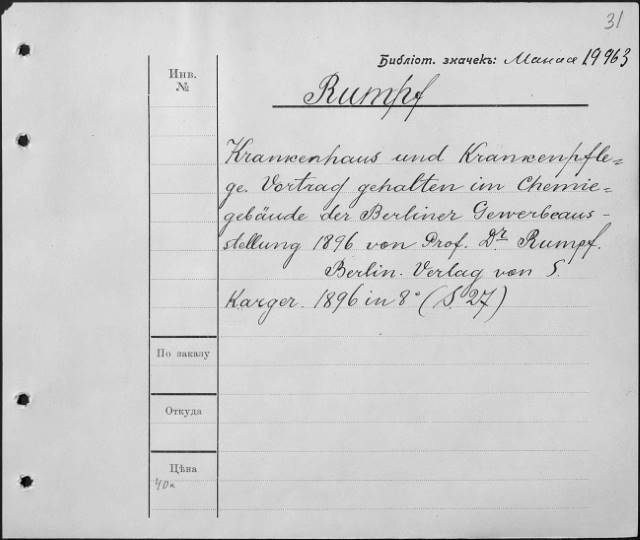 31
Библіот. значекъ: Манасе 19963
Инв.
№
Rumpf
Krankenhaus und Krankenpfle=
ge. Vortrag gehalten im Chemie-
gebäude der Berliner Gewerbeaus-
stellung 1896 von Prof. Dr. Rumpf.
Berlin. Verlag von S.
Karger. 1896 in 8° (S. 27)
По заказу
Откуда
Цѣна
40к